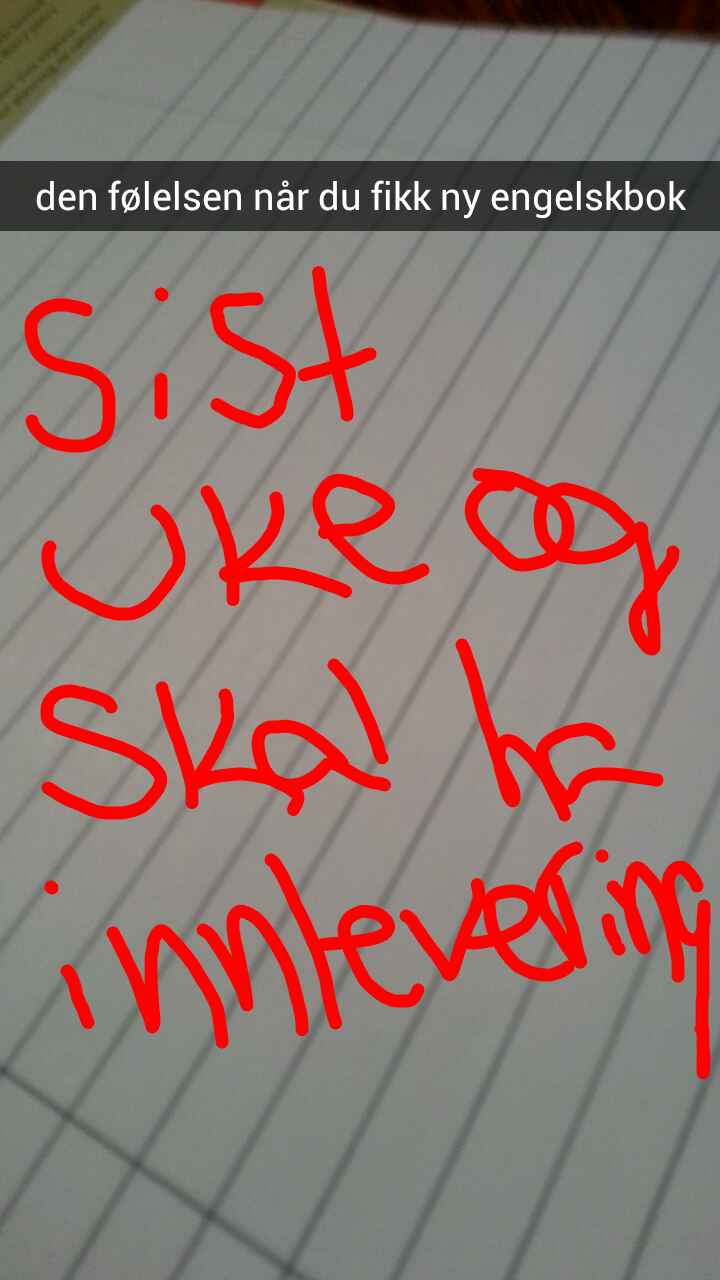 den følelsen når du fikk ny engelskbok
sist
uke og
skal ha
innlevering